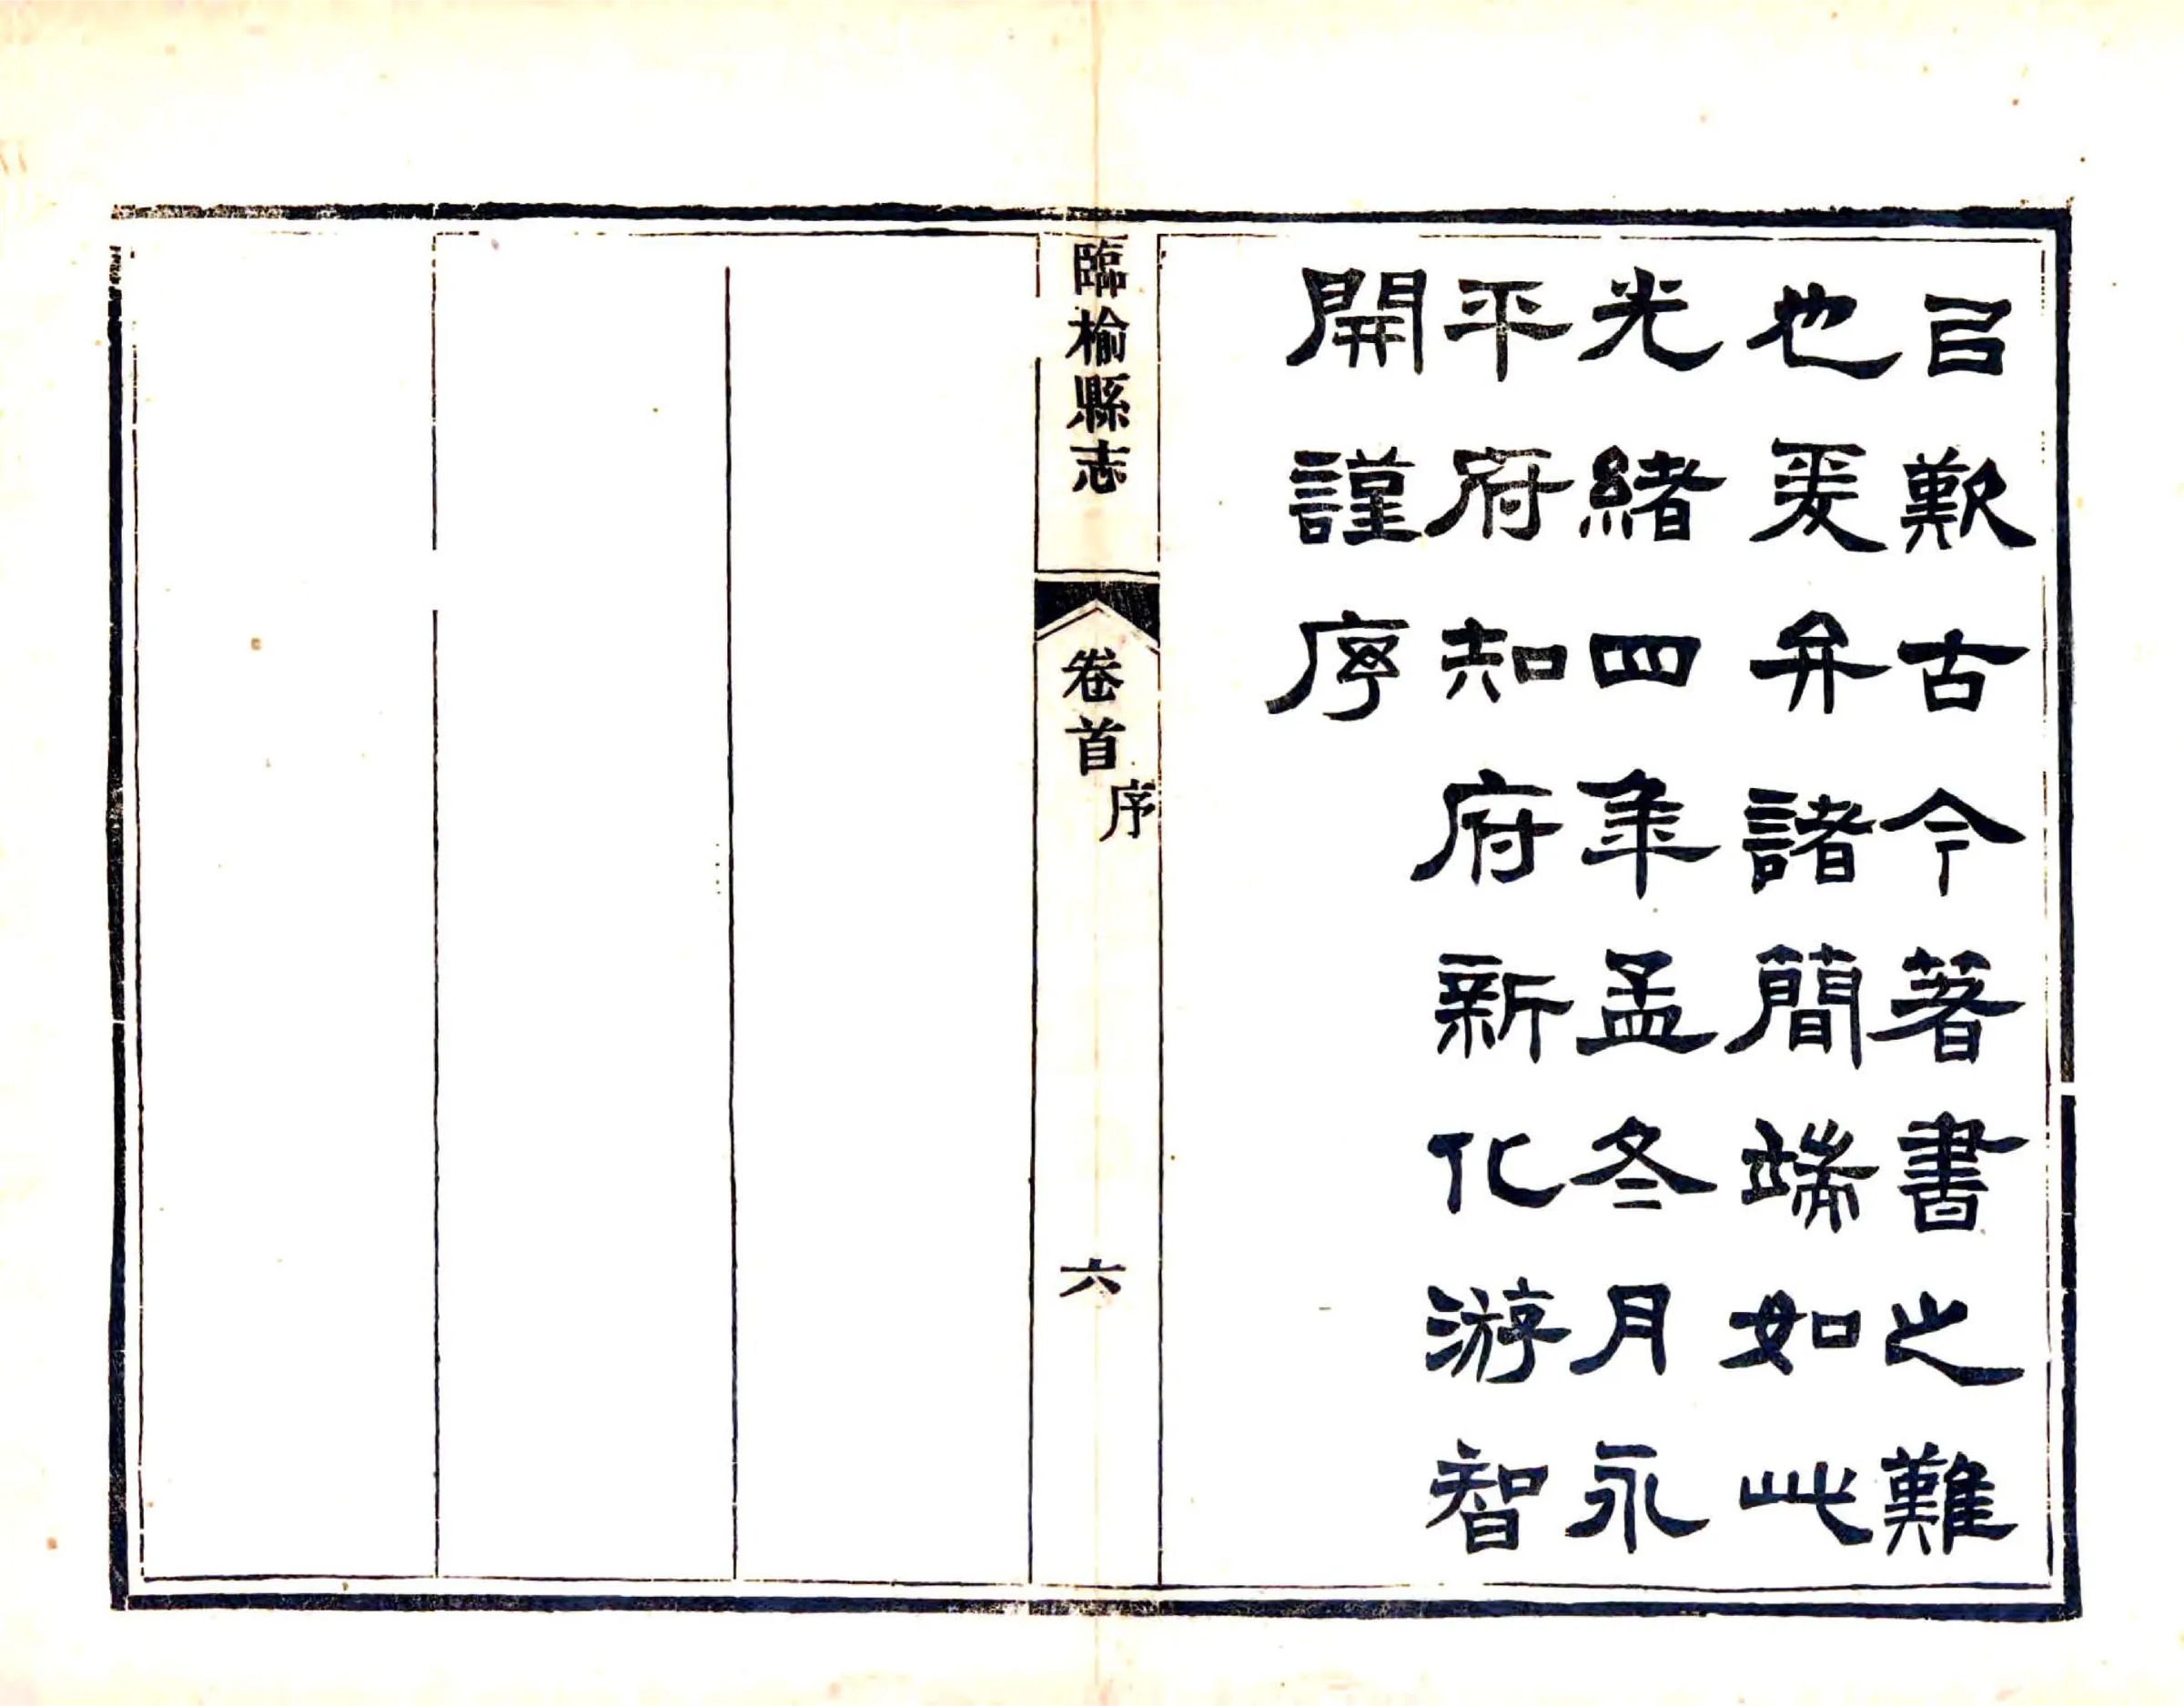 㠯歎古今著書之難
也爰弁諸簡端如此
光緒四年孟冬月永
平府知府新化游智
開謹序
臨榆縣志
卷首
序
六